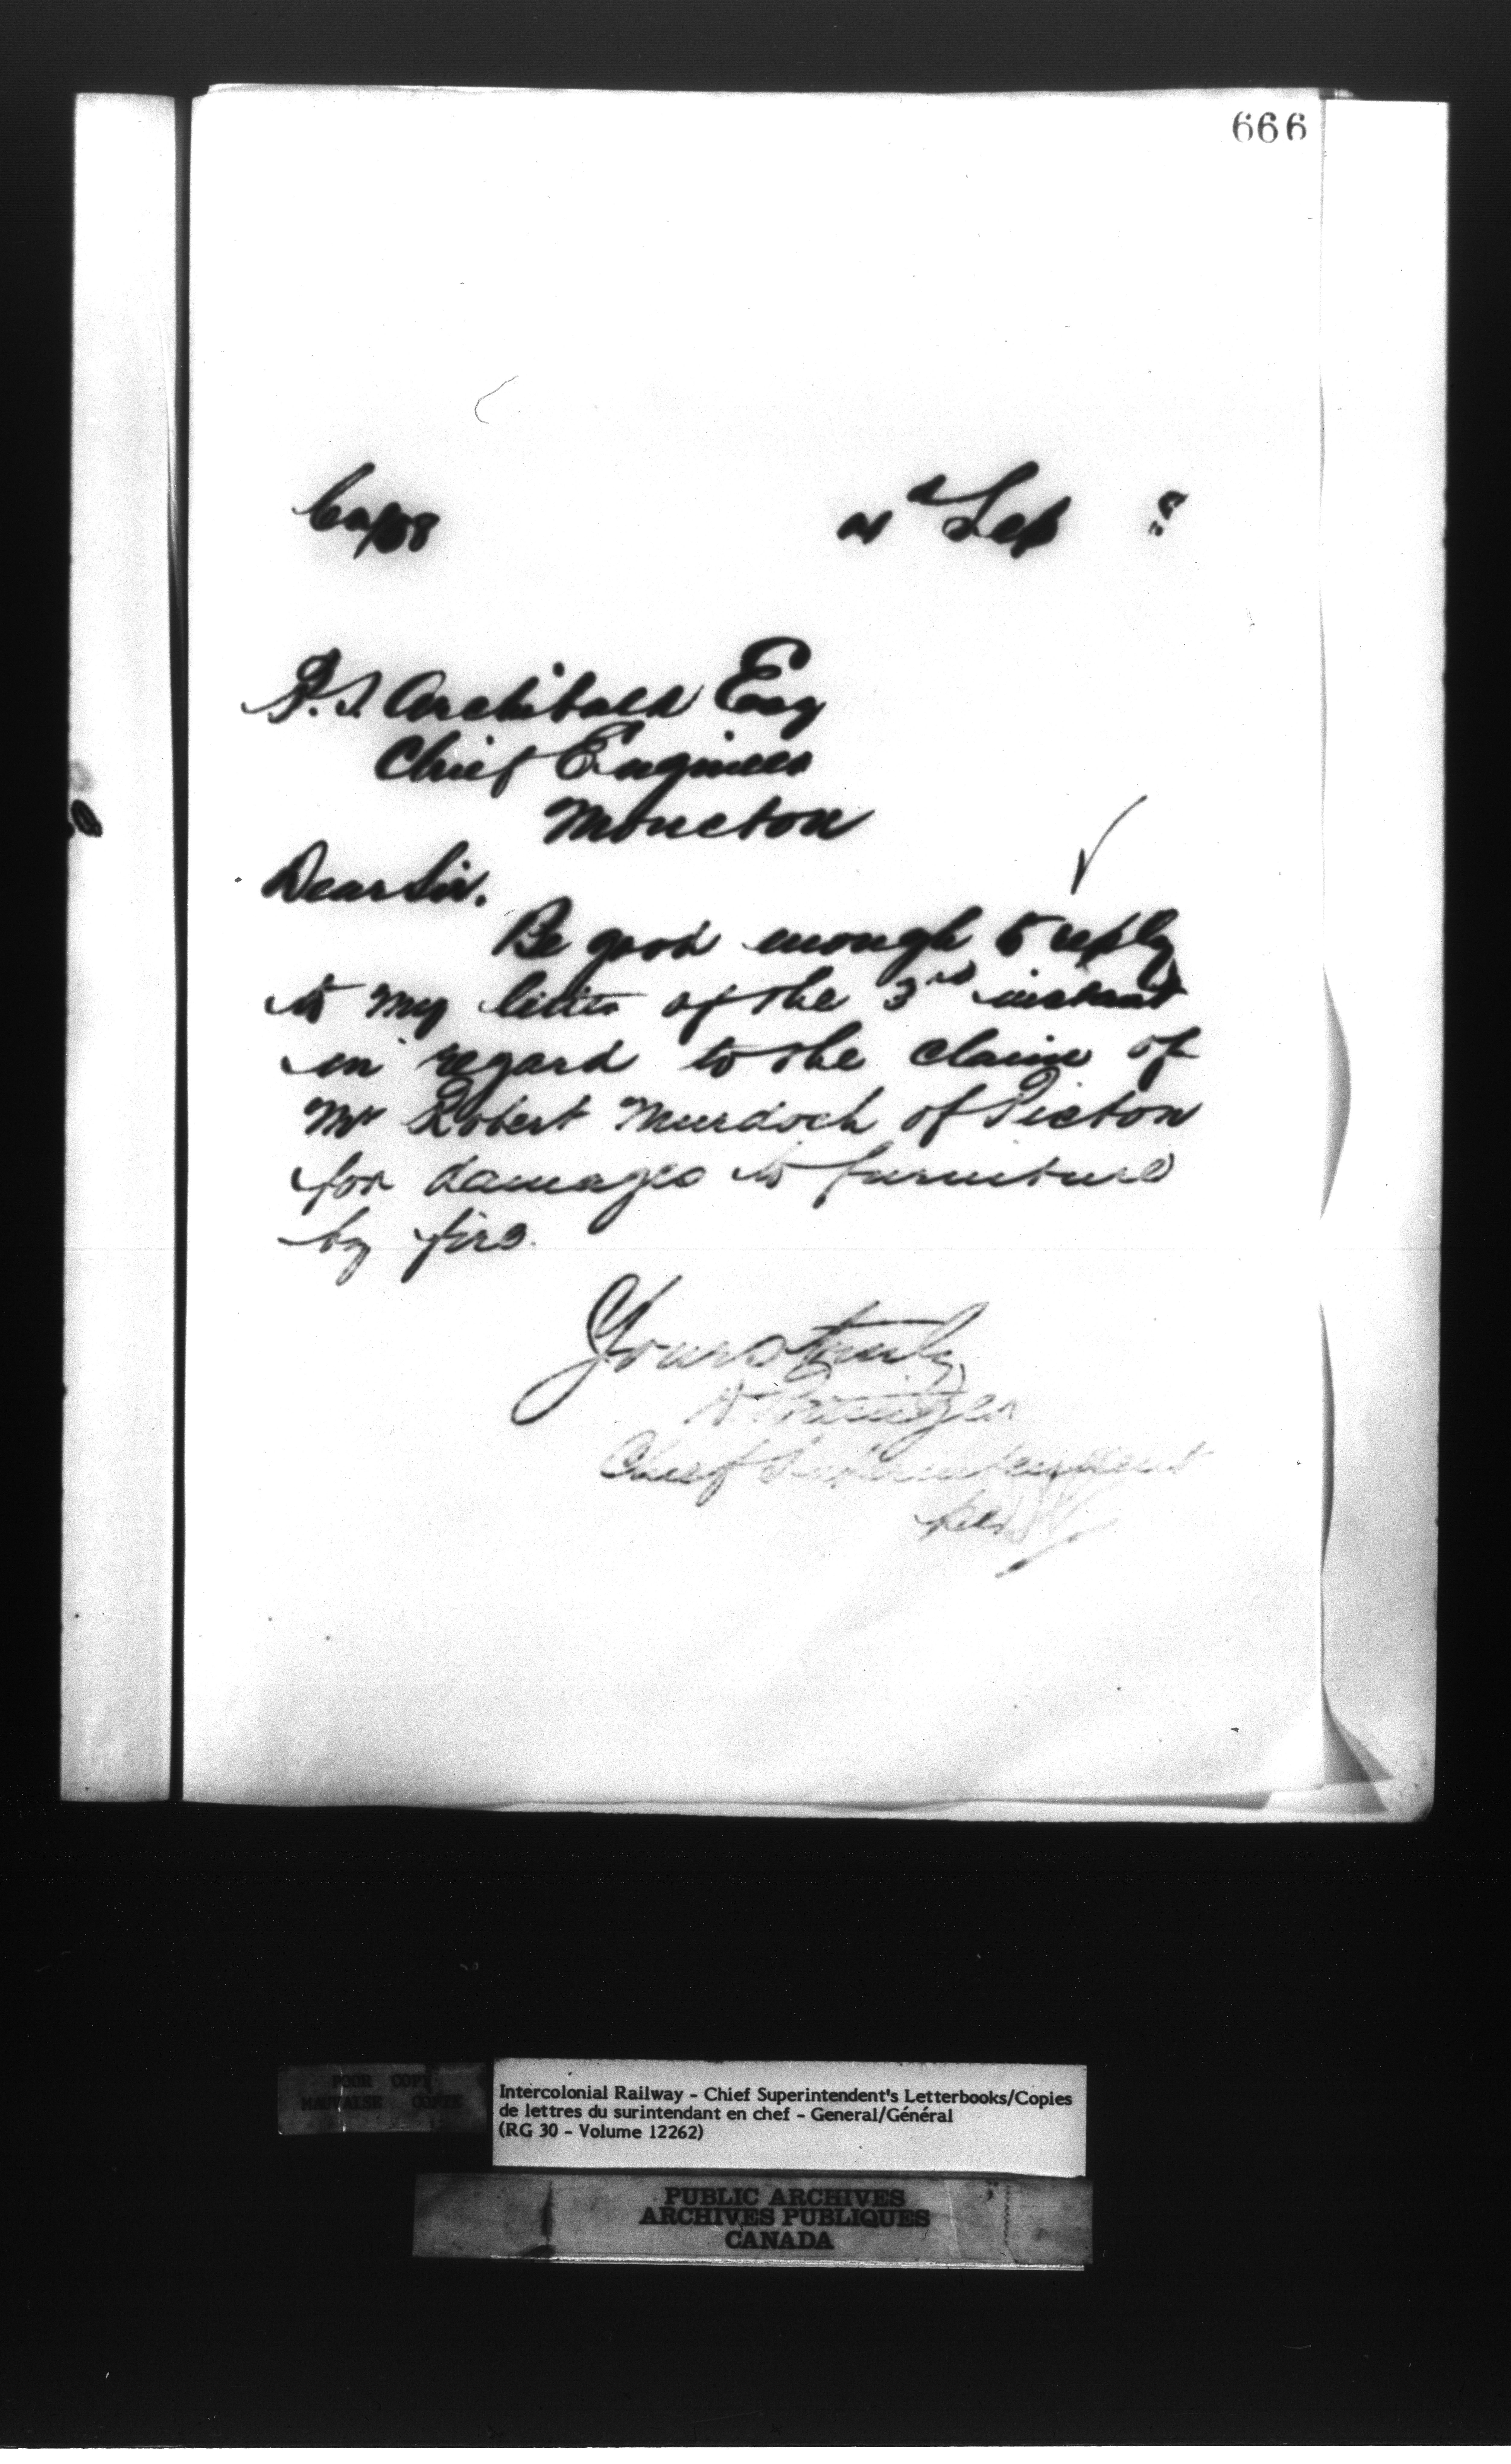 666
Sep
P.S. Archibald Esq
Chief Engineer
Moncton
Dear Sir.
Be good enough to reply
to my letter of the 3rd instant
in regard to the claim of
Mr Robert Murdoch of Pictou
for damages to furniture
by fire.
Yours truly
D Pottinger
Chief Superintendent
per
POOR COPY
MAUVAISE COPIE
Intercolonial Railway - Chief Superintendent's Letterbooks/Copies
de lettres du surintendant en chef - General/Général
(RG 30 - Volume 12262)
PUBLIC ARCHIVES
ARCHIVES PUBLIQUES
CANADA